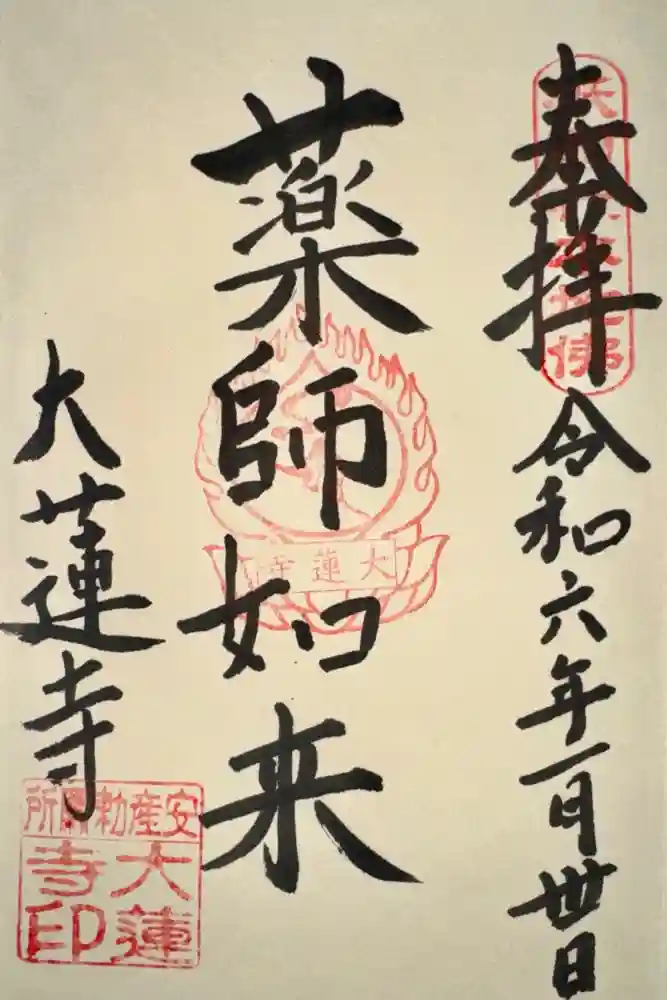 奉拝 令和六年一月丗日
薬師如来
大蓮寺
大蓮寺
安産勅願所
大蓮
寺印